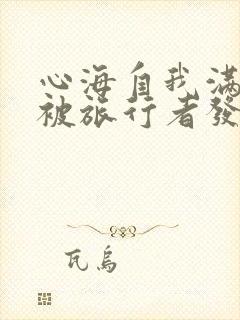 心海自我滿
被旅行者發
瓦烏